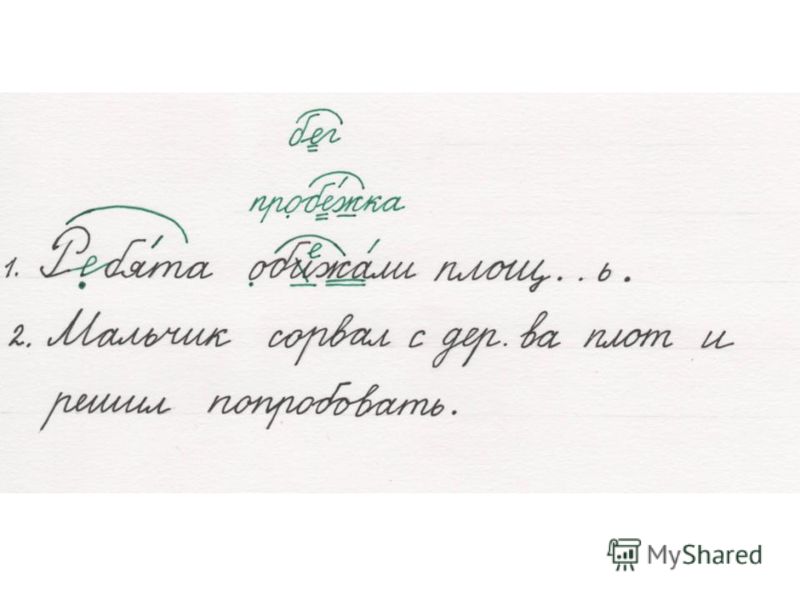 бег
пробежка
е
1. Ребята обижали площ..ь.
2. Мальчик сорвал с дер.ва плот и
решил попробовать.
MyShared